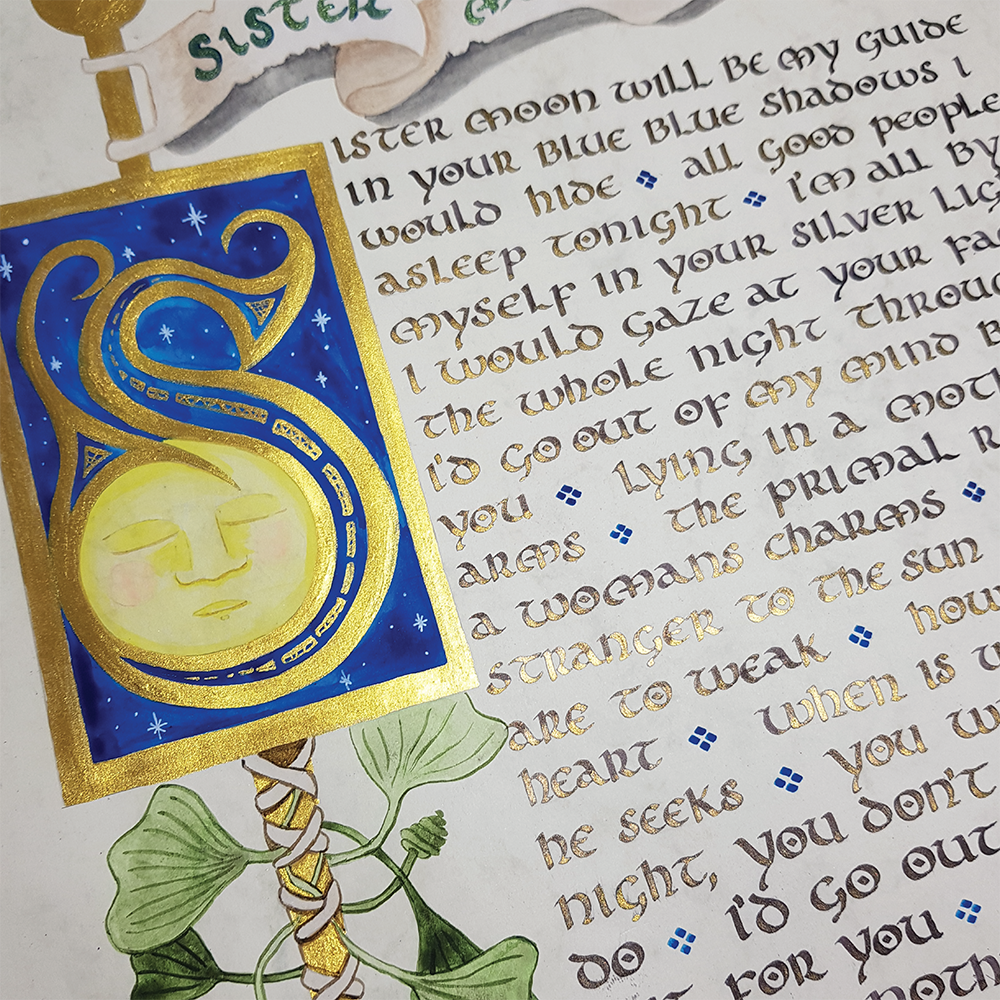 SISTER
ISTER MOON WILL BE MY GUIDE
IN YOUR BLUE BLUE SHADOWS I
WOULD HIDE ALL GOOD PEOPLE
ASLEEP TONIGHT I'M ALL BY
MYSELF IN YOUR SILVER LIG
I WOULD GAZE AT YOUR FA
THE WHOLE NIGHT THROUG
I'D GO OUT OF MY MIND B
YOU LYING IN A MOTH
ARMS THE PRIMAL R
A WOMANS CHARMS
STRANGER TO THE SUN
ARE TO WEAK HOW
HEART WHEN IS
HE SEEKS YOU W
NIGHT, YOU DON'T
DO I'D GO OUT
FOR YOU
NOTH